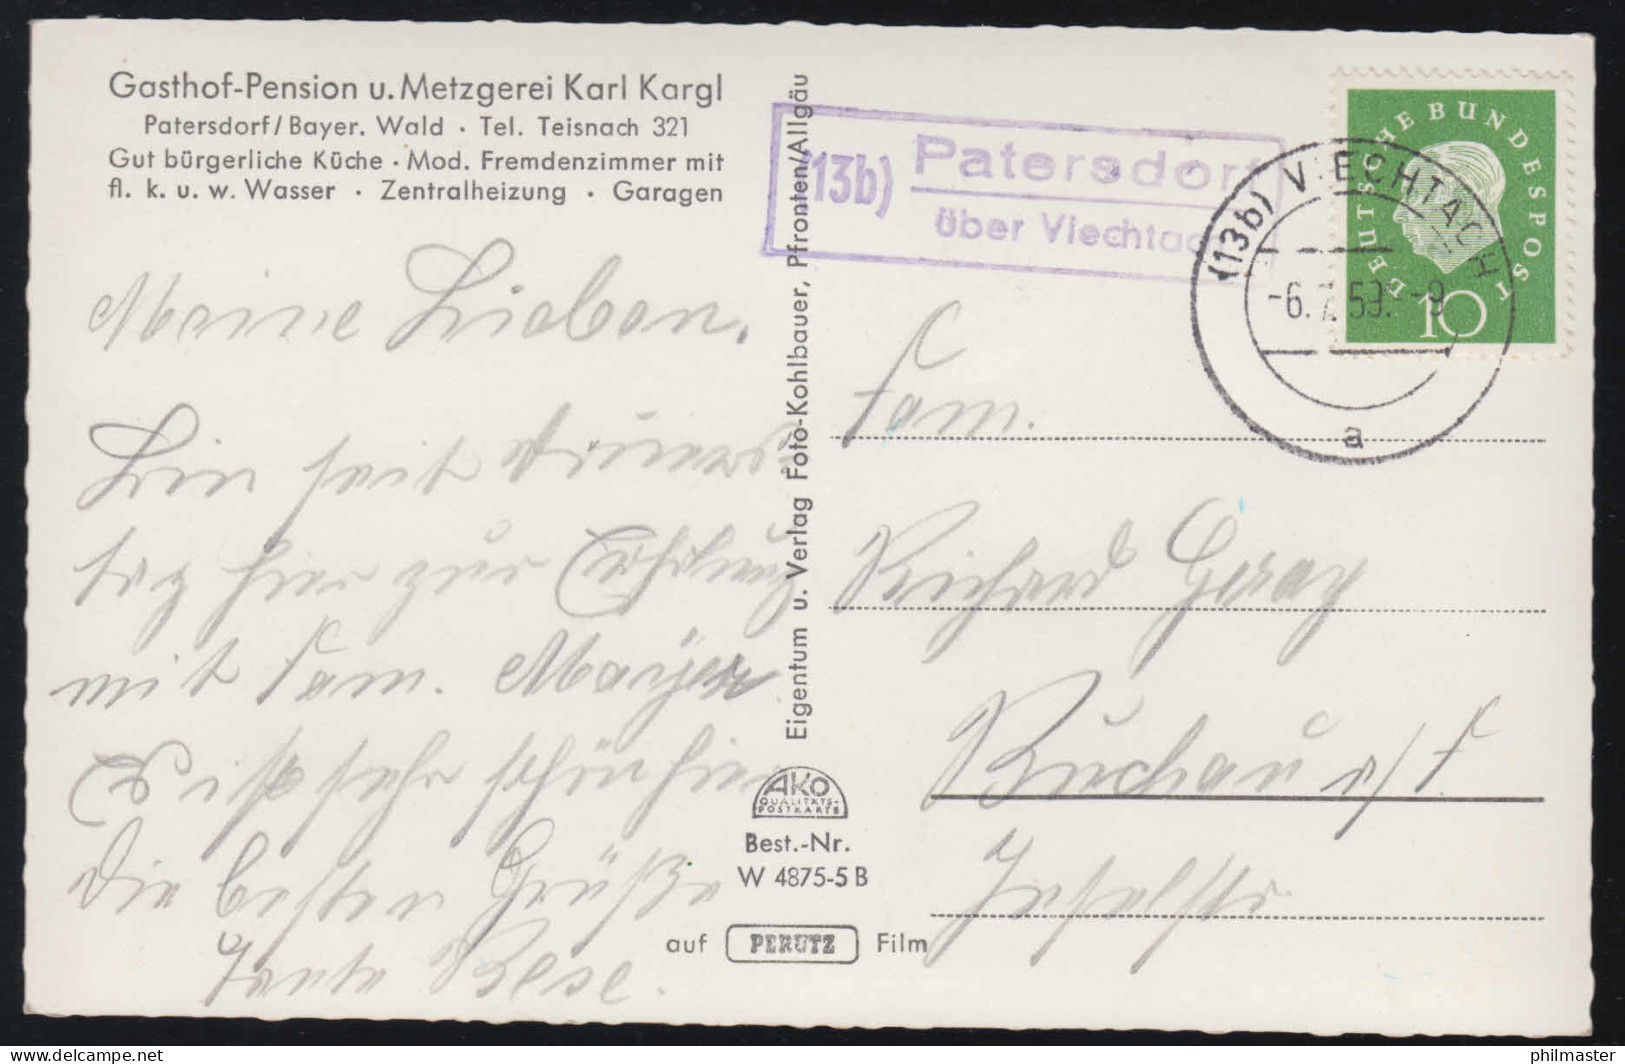 Gasthof-Pension u. Metzgerei Karl Kargl
Patersdorf/Bayer. Wald · Tel. Teisnach 321
Gut bürgerliche Küche · Mod. Fremdenzimmer mit
fl. k. u. w. Wasser · Zentralheizung · Garagen
Meine Lieben.
Bin seit Donners-
tag hier zur Erholung
mit Fam. Mayer
Es ist sehr schön hier
Die besten Grüße
Tante Rese.
Eigentum u. Verlag Foto-Kohlbauer, Pfronten/Allgäu
AKO
QUALITÄTS-
POSTKARTE
Best.-Nr.
W 4875-5 B
auf PERUTZ Film
(13b) Patersdorf
über Viechtach
(13b) VIECHTACH
-6.7.59.-9
a
DEUTSCHE BUNDESPOST
10
Fam.
Richard
Buchau a/F
Inselstr.
delcampe.net
philmaster